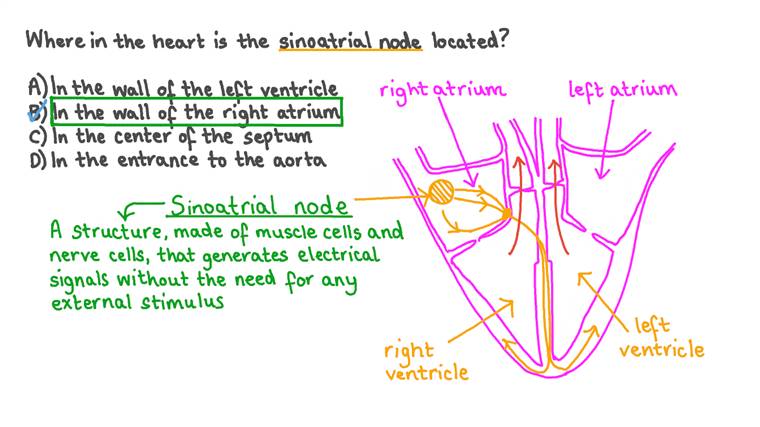 Where in the heart is the sinoatrial node located?
A) In the wall of the left ventricle
B) In the wall of the right atrium
C) In the center of the septum
D) In the entrance to the aorta
right atrium
left atrium
Sinoatrial node
A structure, made of muscle cells and
nerve cells, that generates electrical
signals without the need for any
external stimulus
right
ventricle
left
ventricle